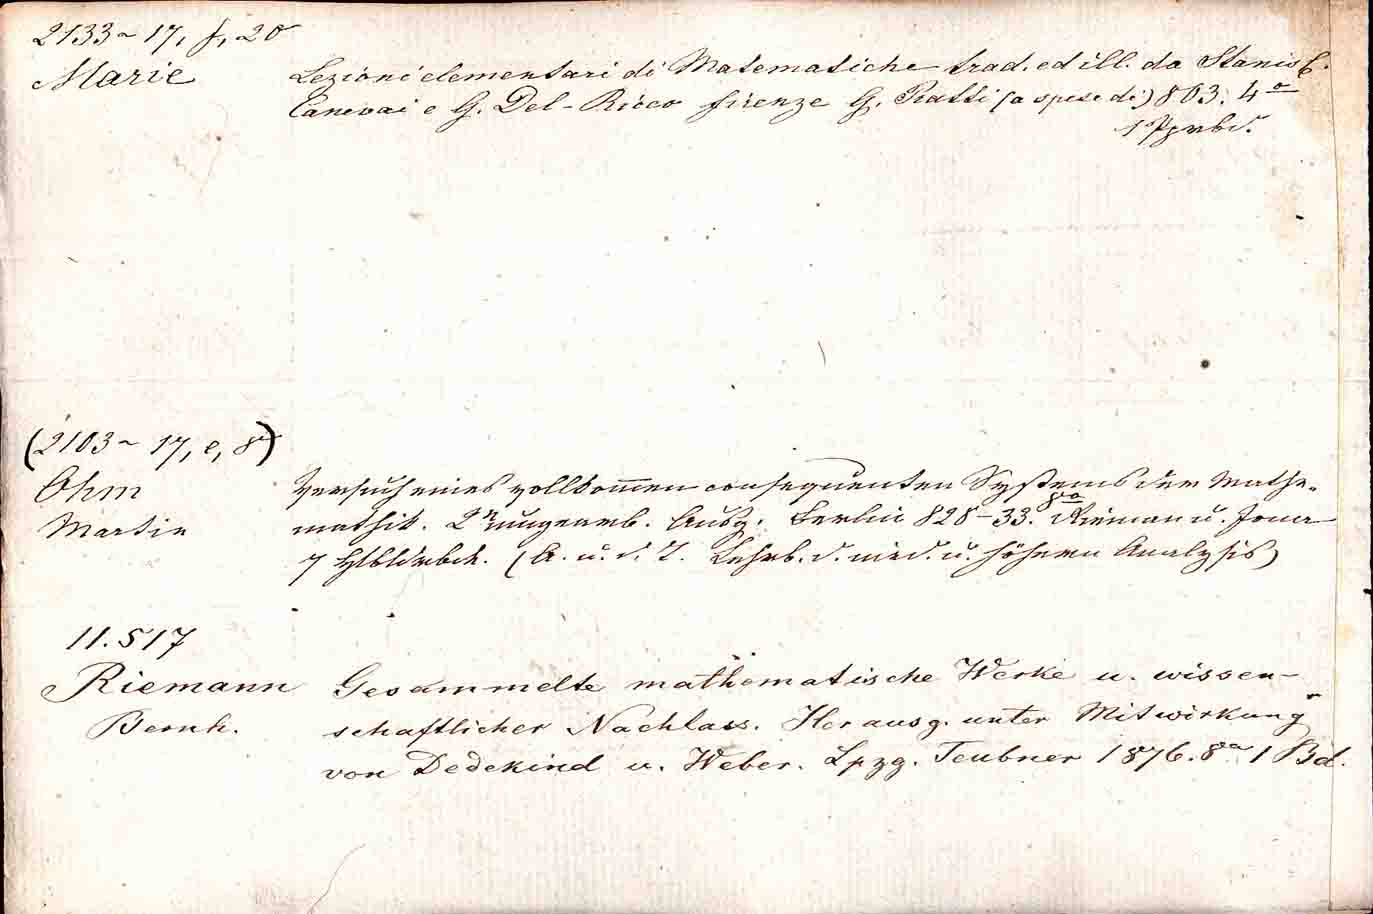 2133~17, f, 20
Marie Lezioni elementari di Matematiche trad. ed ill. da Stanisl.
Canovai e G. Del-Ricco firenze G. Piatti (a spese di) 803. 4o
1 Pprbd.
(2103~17, e, 8)
Ohm Versuch eines vollkommen consequenten Systems der Mathe-
Martin mathik. 2n umgearb. Ausg. Berlin 828-33. 8vo Rieman u. Jonas
7 Hlbldrbde. (A. u. d. T. Lehrb. d. nied. u. höhern Analysis)
11.517
Riemann Gesammelte mathematische Werke u. wissen-
Bernh. schaftlicher Nachlass. Herausg. unter Mitwirkung
von Dedekind u. Weber. Lpzg. Teubner 1876. 8o 1 Bd.